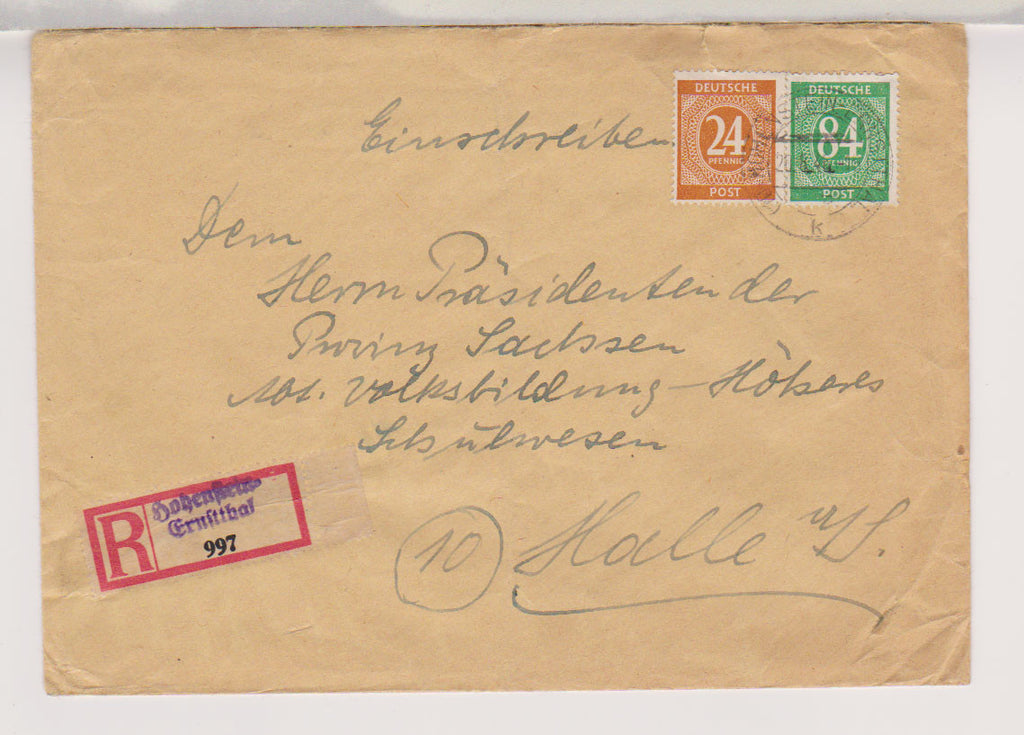 Einschreiben
DEUTSCHE
24
PFENNIG
POST
DEUTSCHE
84
PFENNIG
POST
k
Dem
Herrn Präsidenten der
Provinz Sachsen
Abt. Volksbildung – Höheres
Schulwesen
R
Hohenstein-
Ernstthal
997
10 Halle a/S.